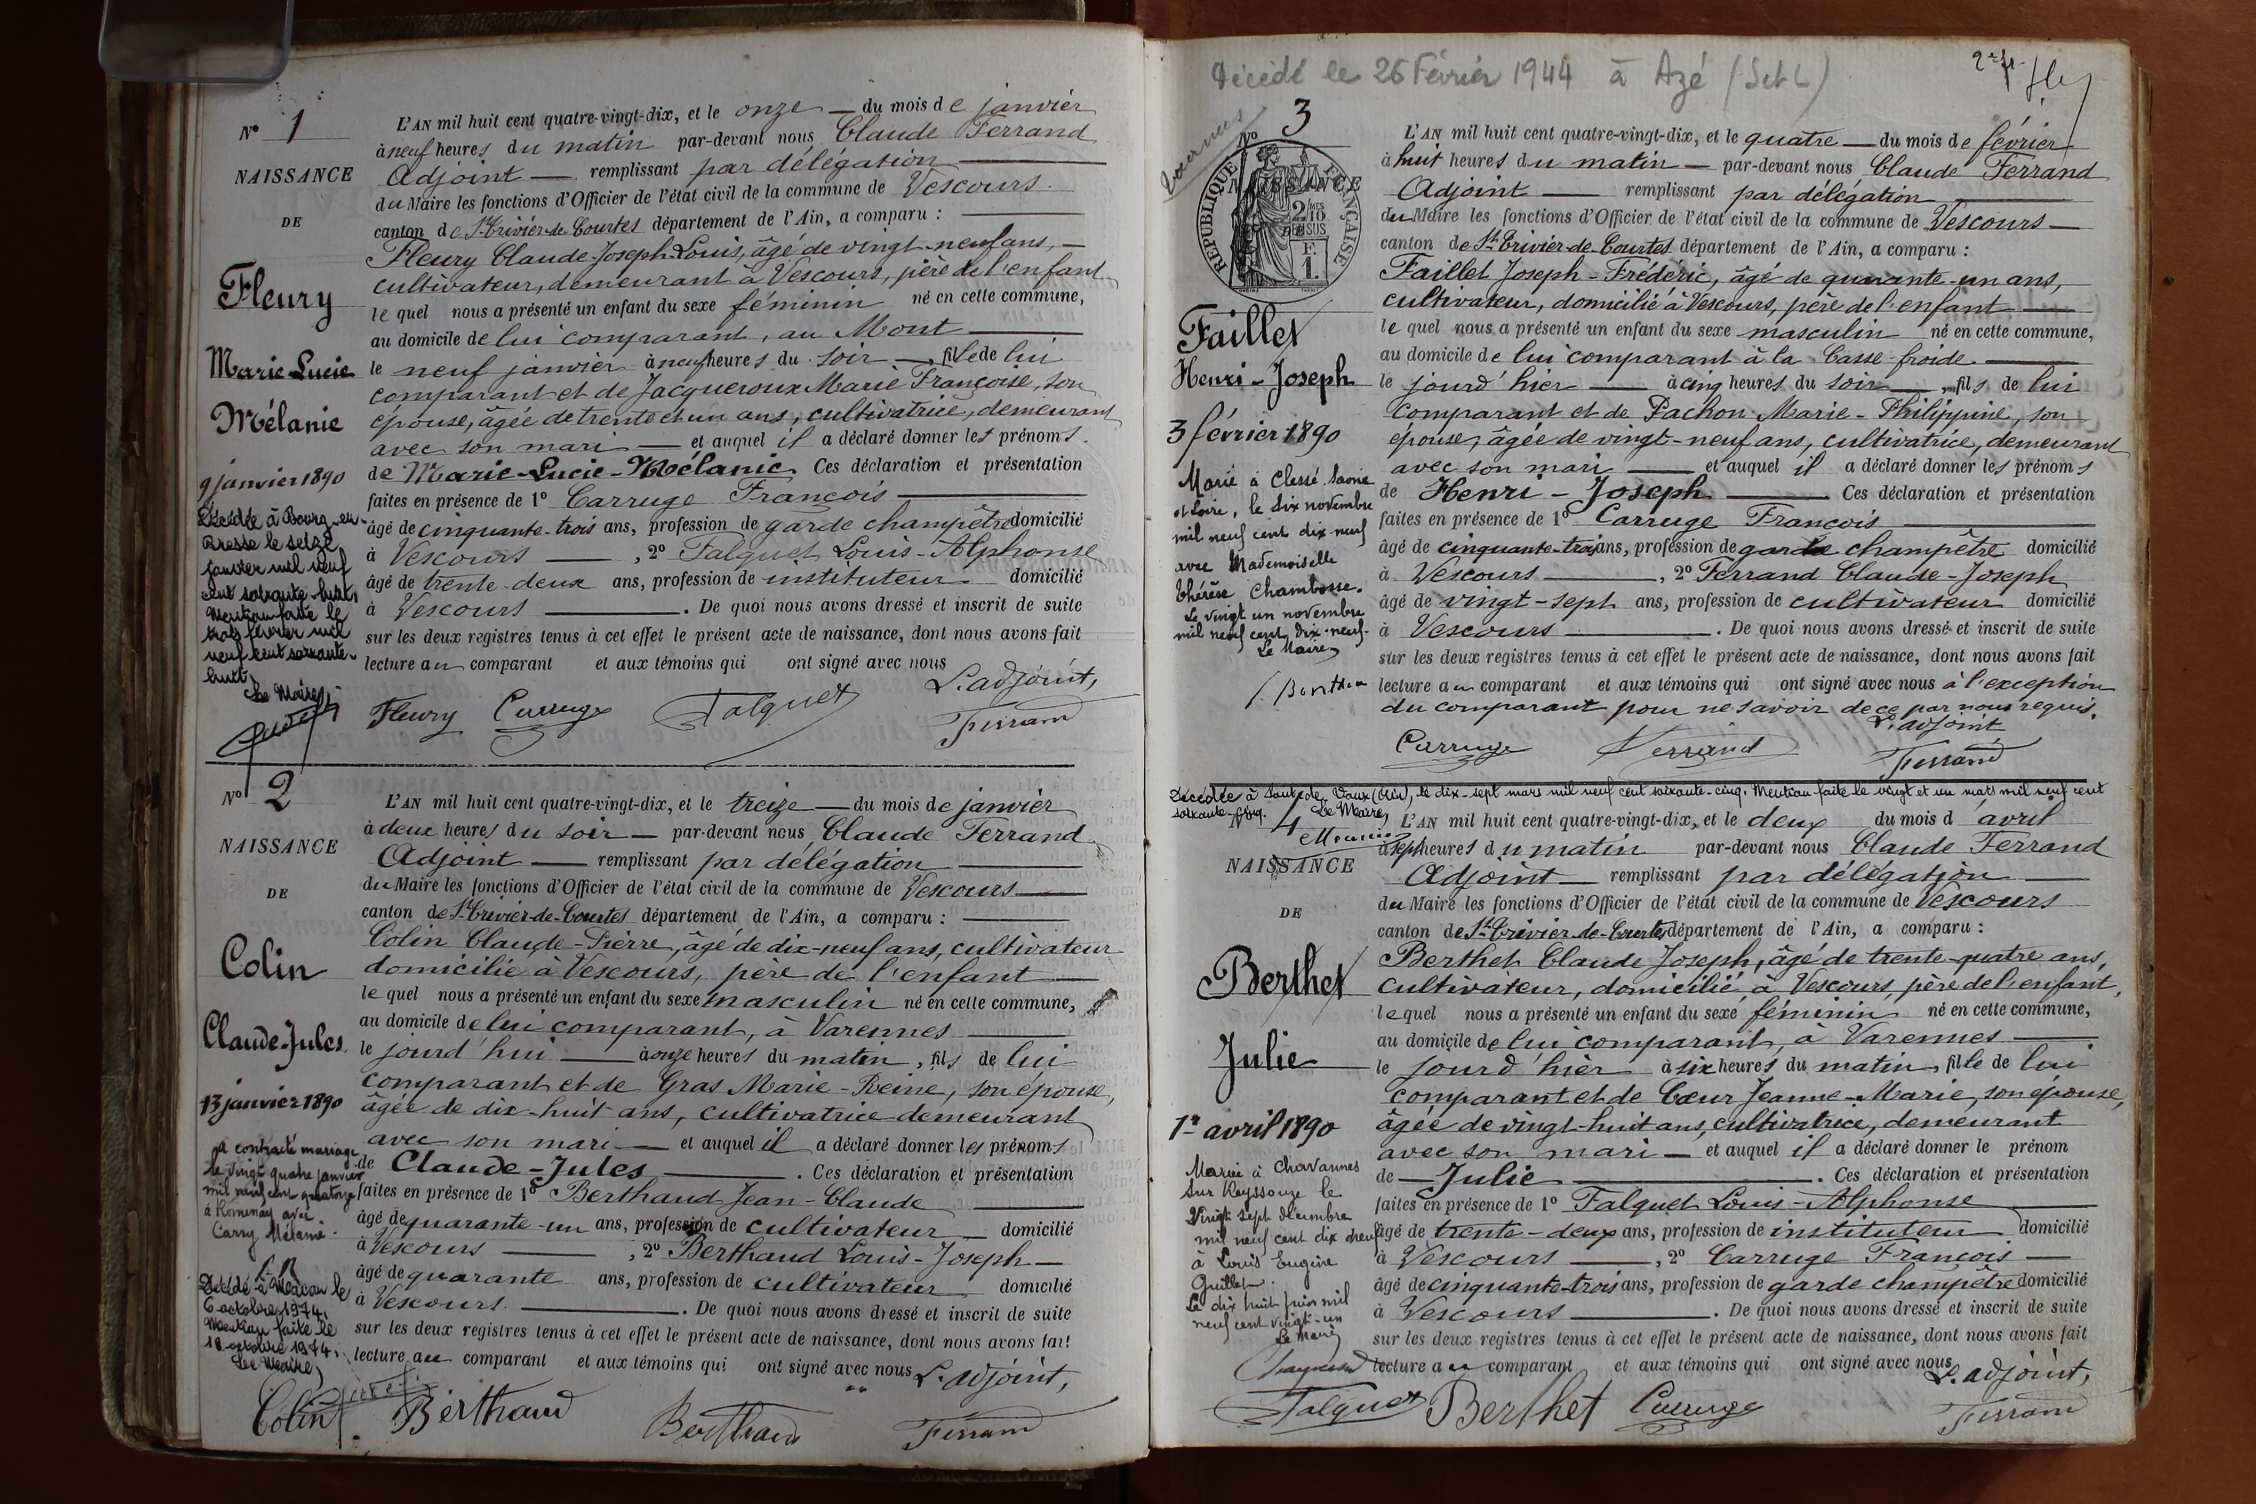 Nº 1
NAISSANCE
DE
Fleury
Marie-Lucie
Mélanie
9 janvier 1890
Décédée à Bourg-en-
Bresse le seize
janvier mil neuf
cent soixante-huit
Mention faite le
trois février mil
neuf cent soixante-
huit.
Le Maire,
L'AN mil huit cent quatre-vingt-dix, et le onze du mois de janvier
à neuf heures du matin par-devant nous Claude Ferrand
Adjoint remplissant par délégation
du Maire les fonctions d'Officier de l'état civil de la commune de Vescours.
canton de St-Trivier-de-Courtes département de l'Ain, a comparu :
Fleury Claude-Joseph-Louis, âgé de vingt-neuf ans,
cultivateur, demeurant à Vescours, père de l'enfant
lequel nous a présenté un enfant du sexe féminin né en cette commune,
au domicile de lui comparant, au Mont
le neuf janvier à neuf heures du soir, fille de lui
comparant et de Jacqueroux Marie Françoise, son
épouse, âgée de trente et un ans, cultivatrice, demeurant
avec son mari et auquel il a déclaré donner les prénoms
de Marie-Lucie-Mélanie. Ces déclaration et présentation
faites en présence de 1º Carruge François
âgé de cinquante-trois ans, profession de garde champêtre domicilié
à Vescours, 2º Falquet Louis-Alphonse
âgé de trente-deux ans, profession de instituteur domicilié
à Vescours. De quoi nous avons dressé et inscrit de suite
sur les deux registres tenus à cet effet le présent acte de naissance, dont nous avons fait
lecture au comparant et aux témoins qui ont signé avec nous
L'adjoint,
Fleury Carruge Falquet Ferrand
Nº 2
NAISSANCE
DE
Colin
Claude-Jules
13 janvier 1890
a contracté mariage
le vingt quatre janvier
mil neuf cent quatorze
à Romenay avec
Carry Mélanie.
Décédé à Macon le
6 octobre 1974.
Mention faite le
18 octobre 1974.
Le Maire,
L'AN mil huit cent quatre-vingt-dix, et le treize du mois de janvier
à deux heures du soir par-devant nous Claude Ferrand
Adjoint remplissant par délégation
du Maire les fonctions d'Officier de l'état civil de la commune de Vescours
canton de St-Trivier-de-Courtes département de l'Ain, a comparu :
Colin Claude-Pierre, âgé de dix-neuf ans, cultivateur
domicilié à Vescours, père de l'enfant
lequel nous a présenté un enfant du sexe masculin né en cette commune,
au domicile de lui comparant, à Varennes
le jourd'hui à onze heures du matin, fils de lui
comparant et de Gras Marie-Reine, son épouse,
âgée de dix-huit ans, cultivatrice demeurant
avec son mari et auquel il a déclaré donner les prénoms
de Claude-Jules. Ces déclaration et présentation
faites en présence de 1º Berthaud Jean-Claude
âgé de quarante-un ans, profession de cultivateur domicilié
à Vescours, 2º Berthaud Louis-Joseph
âgé de quarante ans, profession de cultivateur domicilié
à Vescours. De quoi nous avons dressé et inscrit de suite
sur les deux registres tenus à cet effet le présent acte de naissance, dont nous avons fait
lecture au comparant et aux témoins qui ont signé avec nous L'adjoint,
Colin Berthaud Berthaud Ferrand
Décédé le 26 Février 1944 à Azé (S et L)
Nº 3
NAISSANCE
RÉPUBLIQUE FRANÇAISE
2 MES 10
EN SUS
F.
1.
Faillet
Henri-Joseph
3 février 1890
Marié à Clessé Saône
et Loire, le six novembre
mil neuf cent dix-neuf
avec Mademoiselle
Thérèse Chambosse.
Le vingt un novembre
mil neuf cent dix-neuf.
Le Maire,
L'AN mil huit cent quatre-vingt-dix, et le quatre du mois de février
à huit heures du matin par-devant nous Claude Ferrand
Adjoint remplissant par délégation
du Maire les fonctions d'Officier de l'état civil de la commune de Vescours
canton de St-Trivier-de-Courtes département de l'Ain, a comparu :
Faillet Joseph-Frédéric, âgé de quarante-un ans,
cultivateur, domicilié à Vescours, père de l'enfant
lequel nous a présenté un enfant du sexe masculin né en cette commune,
au domicile de lui comparant à la Casse-froide.
le jourd'hier à cinq heures du soir, fils de lui
comparant et de Pachon Marie-Philippine, son
épouse, âgée de vingt-neuf ans, cultivatrice, demeurant
avec son mari et auquel il a déclaré donner les prénoms
de Henri-Joseph. Ces déclaration et présentation
faites en présence de 1º Carruge François
âgé de cinquante-trois ans, profession de garde champêtre domicilié
à Vescours, 2º Ferrand Claude-Joseph
âgé de vingt-sept ans, profession de cultivateur domicilié
à Vescours. De quoi nous avons dressé et inscrit de suite
sur les deux registres tenus à cet effet le présent acte de naissance, dont nous avons fait
lecture au comparant et aux témoins qui ont signé avec nous à l'exception
du comparant pour ne savoir de ce par nous requis.
L'adjoint
Carruge Ferrand Ferrand
Décédée à Saint-de-Vaux (Ain), le dix-sept mars mil neuf cent soixante-cinq. Mention faite le vingt et un mars mil neuf cent
soixante-cinq. Le Maire,
Nº 4
NAISSANCE
DE
Berthet
Julie
1er avril 1890
Mariée à Chavannes
sur Reyssouze le
vingt sept décembre
mil neuf cent dix neuf
à Louis Eugène
Guillet.
Le dix huit juin mil
neuf cent vingt-un
Le Maire
L'AN mil huit cent quatre-vingt-dix, et le deux du mois d'avril
à sept heures du matin par-devant nous Claude Ferrand
Adjoint remplissant par délégation
du Maire les fonctions d'Officier de l'état civil de la commune de Vescours
canton de St-Trivier-de-Courtes département de l'Ain, a comparu :
Berthet Claude Joseph, âgé de trente-quatre ans,
cultivateur, domicilié à Vescours, père de l'enfant,
lequel nous a présenté un enfant du sexe féminin né en cette commune,
au domicile de lui comparant, à Varennes
le jourd'hier à six heures du matin, fille de lui
comparant et de Cœur Jeanne-Marie, son épouse,
âgée de vingt-huit ans, cultivatrice, demeurant
avec son mari et auquel il a déclaré donner le prénom
de Julie. Ces déclaration et présentation
faites en présence de 1º Falquet Louis-Alphonse
âgé de trente-deux ans, profession de instituteur domicilié
à Vescours, 2º Carruge François
âgé de cinquante-trois ans, profession de garde champêtre domicilié
à Vescours. De quoi nous avons dressé et inscrit de suite
sur les deux registres tenus à cet effet le présent acte de naissance, dont nous avons fait
lecture au comparant et aux témoins qui ont signé avec nous
L'adjoint,
Falquet Berthet Carruge Ferrand